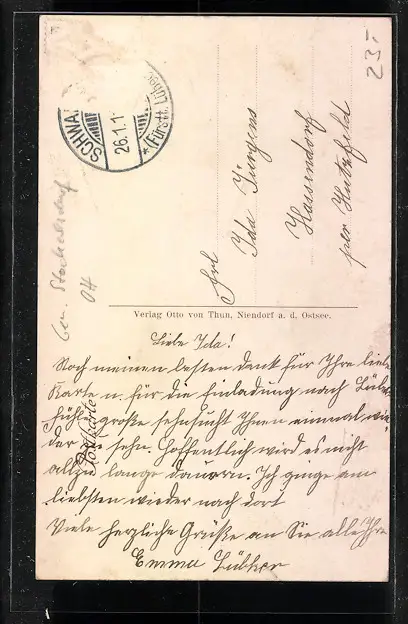 23.-
SCHWA
26.1.1
* (Fürstt. Lübec
Frl
Ida Jürgens
Hassendorf
per Hutzfeld
Gem. Stockelsdorf
04
Verlag Otto von Thun, Niendorf a. d. Ostsee.
Postkarte
Liebe Ida!
Noch meinen besten Dank für Ihre liebe
Karte u. für die Einladung nach Lübeck
fühle große Sehnsucht Ihnen einmal wie-
der zu sehn. Hoffentlich wird es nicht
allzu lange dauern. Ich ginge am
liebsten wieder nach dort
Viele herzliche Grüße an Sie alle Ihre
Emma Lübker